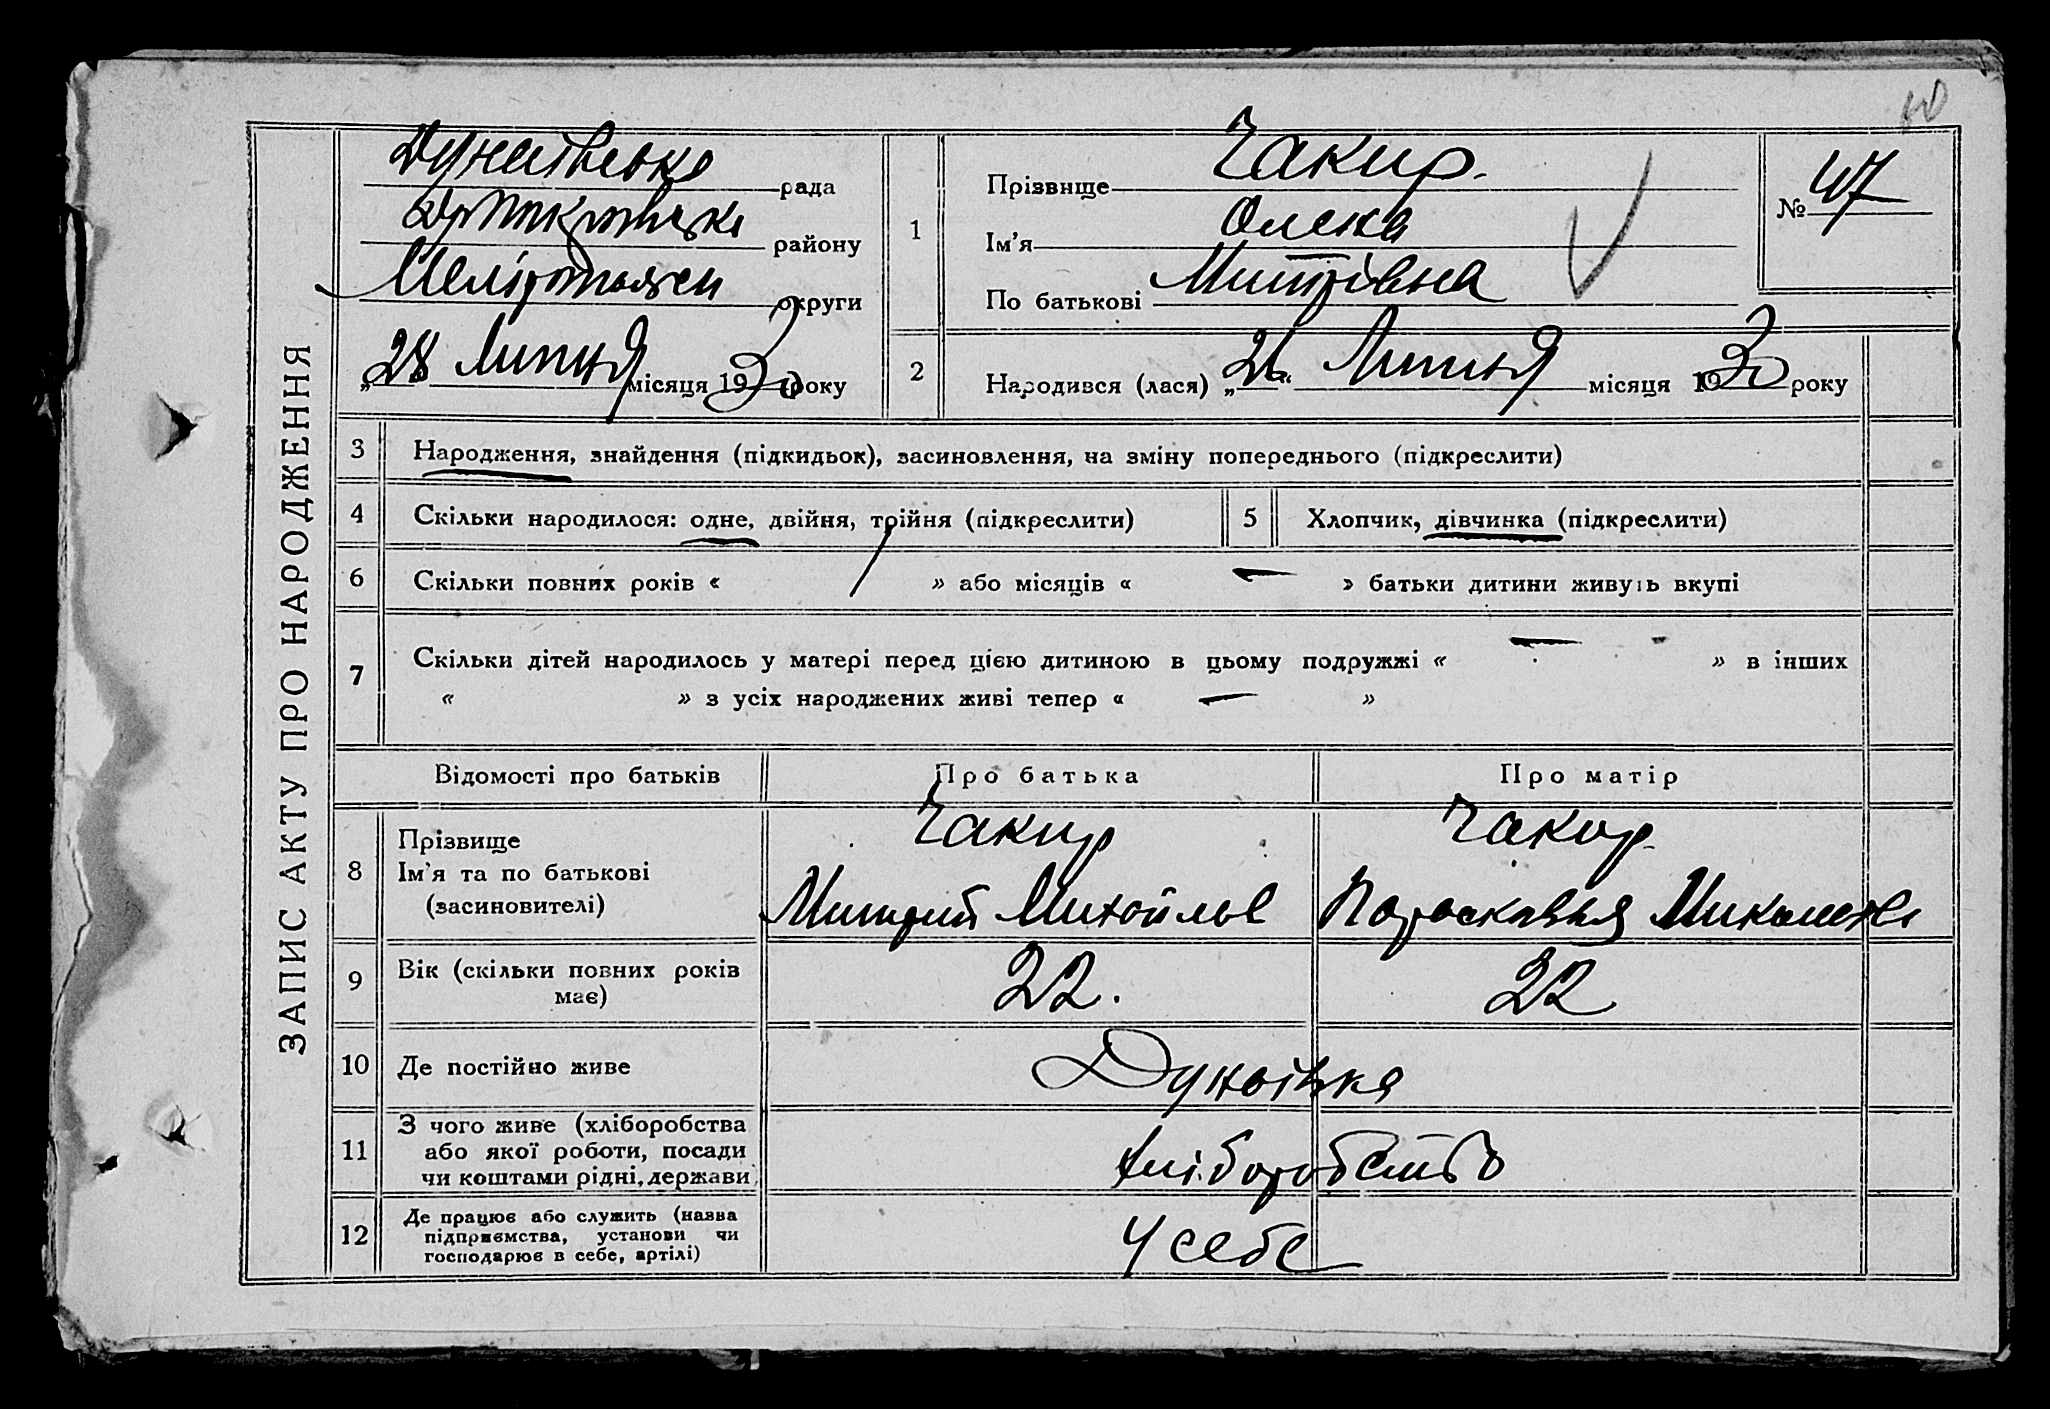 ЗАПИС АКТУ ПРО НАРОДЖЕННЯ
рада
району
округи
„28 Липня місяця 1930 року
1
Прізвище Чакир.
Ім’я
По батькові Митрівна
№ 47
2
Народився (лася) „26“ Липня місяця 1930 року
3 Народження, знайдення (підкидьок), засиновлення, на зміну попереднього (підкреслити)
4 Скільки народилося: одне, двійня, трійня (підкреслити)
5 Хлопчик, дівчинка (підкреслити)
6 Скільки повних років « / » або місяців « — » батьки дитини живуть вкупі
7 Скільки дітей народилось у матері перед цією дитиною в цьому подружжі « — » в інших
« » з усіх народжених живі тепер « — »
Відомості про батьків Про батька Про матір
8 Прізвище
Ім’я та по батькові
(засиновителі)
Чакир
Митрий Михойлов
Чакир
Пораскавья
9 Вік (скільки повних років
має)
22. 22
10 Де постійно живе Дунаівка
11 З чого живе (хліборобства
або якої роботи, посади
чи коштами рідні, держави)
хліборобство
12 Де працює або служить (назва
підприємства, установи чи
господарює в себе, артілі)
У себе